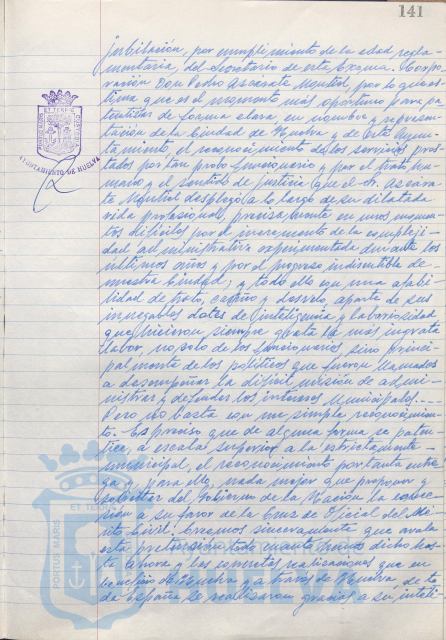 141
jubilación, por cumplimiento de la edad regla-
mentaria, del Secretario de esta Excma. Corpo-
ración Don Pedro Ascárate Montiel, por lo que es-
tima que es el momento más oportuno para pa-
tentizar de forma clara, en nombre y represen-
tación de la Ciudad de Huelva y de este Ayun-
tamiento, el reconocimiento de los servicios pres-
tados por tan probo funcionario y por el trato hu-
mano y el sentido de justicia que el Sr. Ascára-
te Montiel desplegó a lo largo de su dilatada
vida profesional, precisamente en unos momen-
tos difíciles por el incremento de la compleji-
dad administrativa experimentada durante los
últimos años y por el progreso indiscutible de
nuestra Ciudad; y todo ello con una afabi-
lidad de trato, cariño y desvelo, aparte de sus
innegables dotes de inteligencia y laboriosidad
que hicieron siempre grata la más ingrata
labor, no solo de los funcionarios sino princi-
palmente de los políticos que fueron llamados
a desempeñar la difícil misión de admi-
nistrar y defender los intereses Municipales.
Pero no basta con un simple reconocimien-
to. Es preciso que de alguna forma se paten-
tice, a escala superior a la estrictamente
municipal, el reconocimiento por tanta entre-
ga y, para ello, nada mejor que proponer y
solicitar del Gobierno de la Nación la conce-
sión a su favor de la Cruz de Oficial del Mé-
rito Civil. Creemos sinceramente que avala
esta pretensión todo cuanto hemos dicho has-
ta ahora y las concretas realizaciones que en
beneficio de Huelva y a través de Huelva, de to-
da España se realizaron gracias a su inteli-
PORTUS MARIS
ET TERRAE
CUSTODIA
AYUNTAMIENTO DE HUELVA
PORTUS MARIS
ET TERRAE